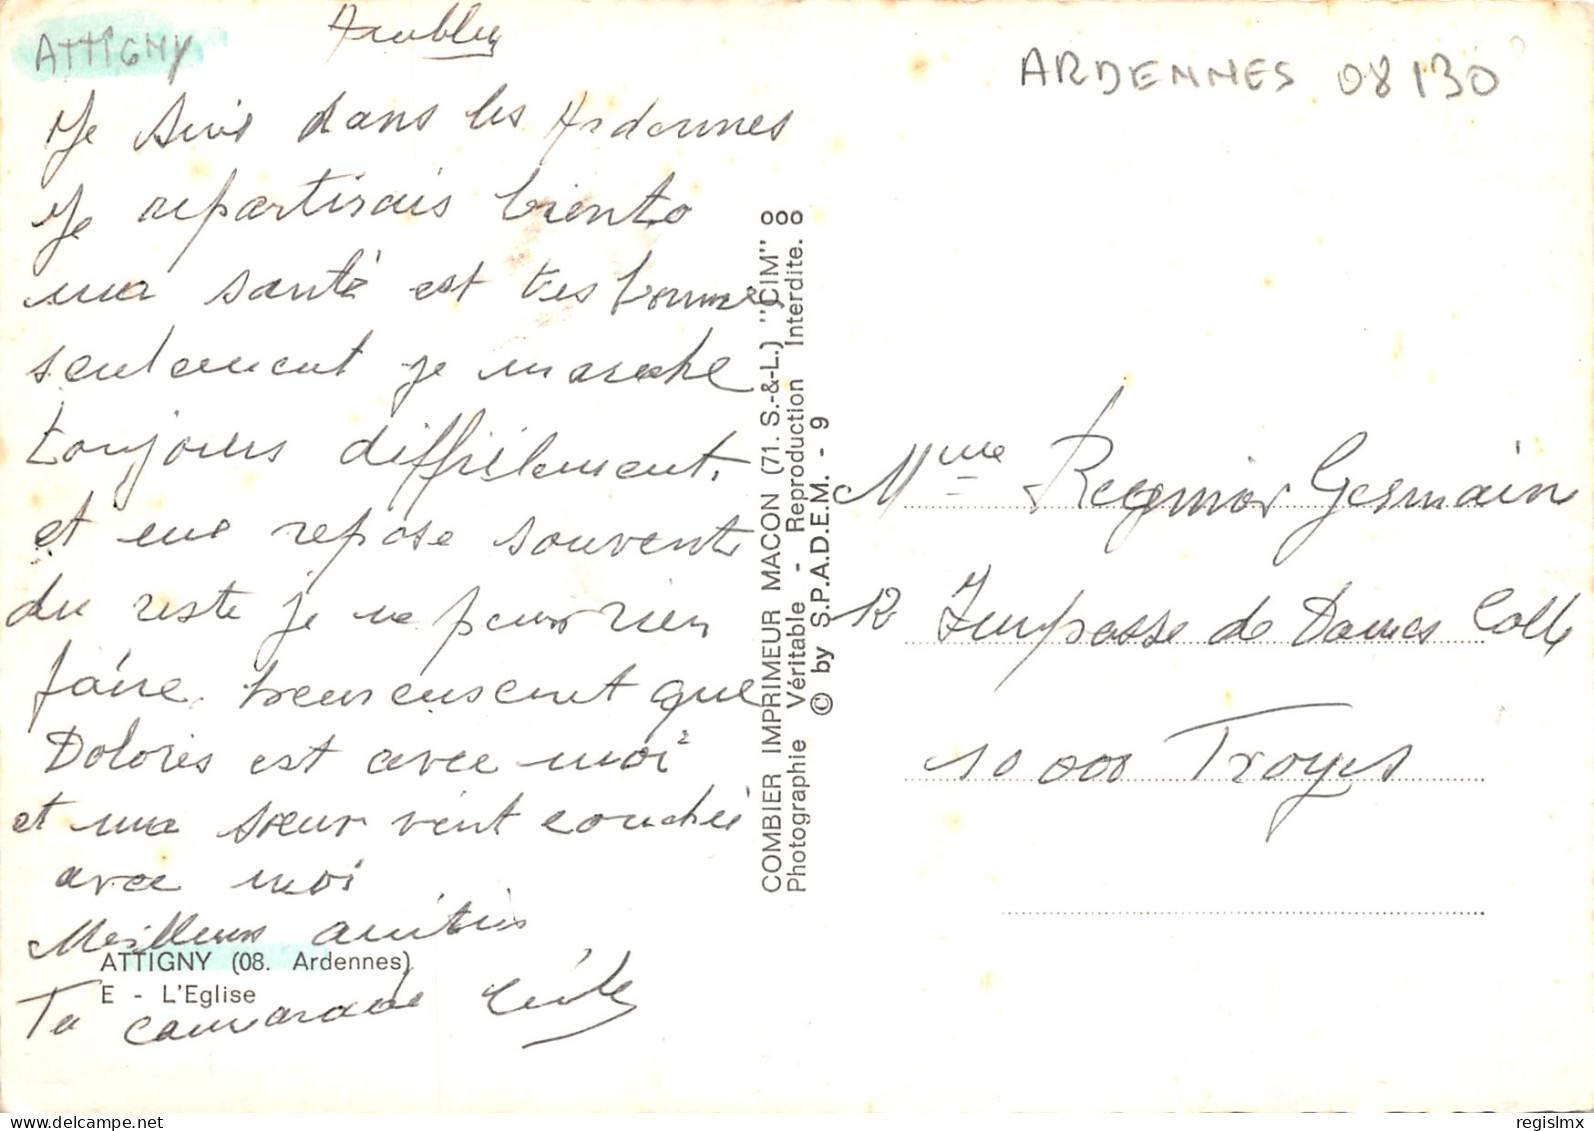 ATTIGNY
ARDENNES 08130
Je suis dans les Ardennes
Je repartirais biento
ma santé est tres bonne
seulement je marche
toujours diffielement.
et me repose souvent
du reste je ne peux rien
faire. heureusement que
Dolores est avec moi
et ma sœur vent couchée
avec moi
Meilleurs amitiés
ATTIGNY (08. Ardennes)
E - L'Eglise
Ta camarade
COMBIER IMPRIMEUR MACON (71. S.-&-L.) "CIM" ooo
Photographie Véritable - Reproduction Interdite. o
© by S.P.A.D.E.M. - 9
Mme Germain
12 Impasse de Dames Colle
10 000 Troyes
regislmx